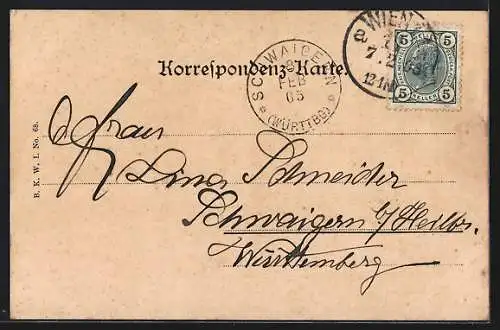 WIEN
7. 2
5 5
HELLER
5 5
Korrespondenz-Karte.
SCHWAIGERN
8
FEB
05
* (WÜRTTBG) *
Frau
Lina Schneider
Schwaigern b/Heilbr.
Württemberg
B. K. W. I. No. 68.